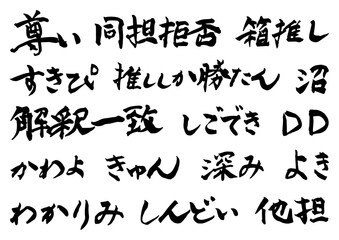 尊い 同担拒否 箱推し
すきぴ 推ししか勝たん 沼
解釈一致 しごでき DD
かわよ きゅん 深み よき
わかりみ しんどい 他担